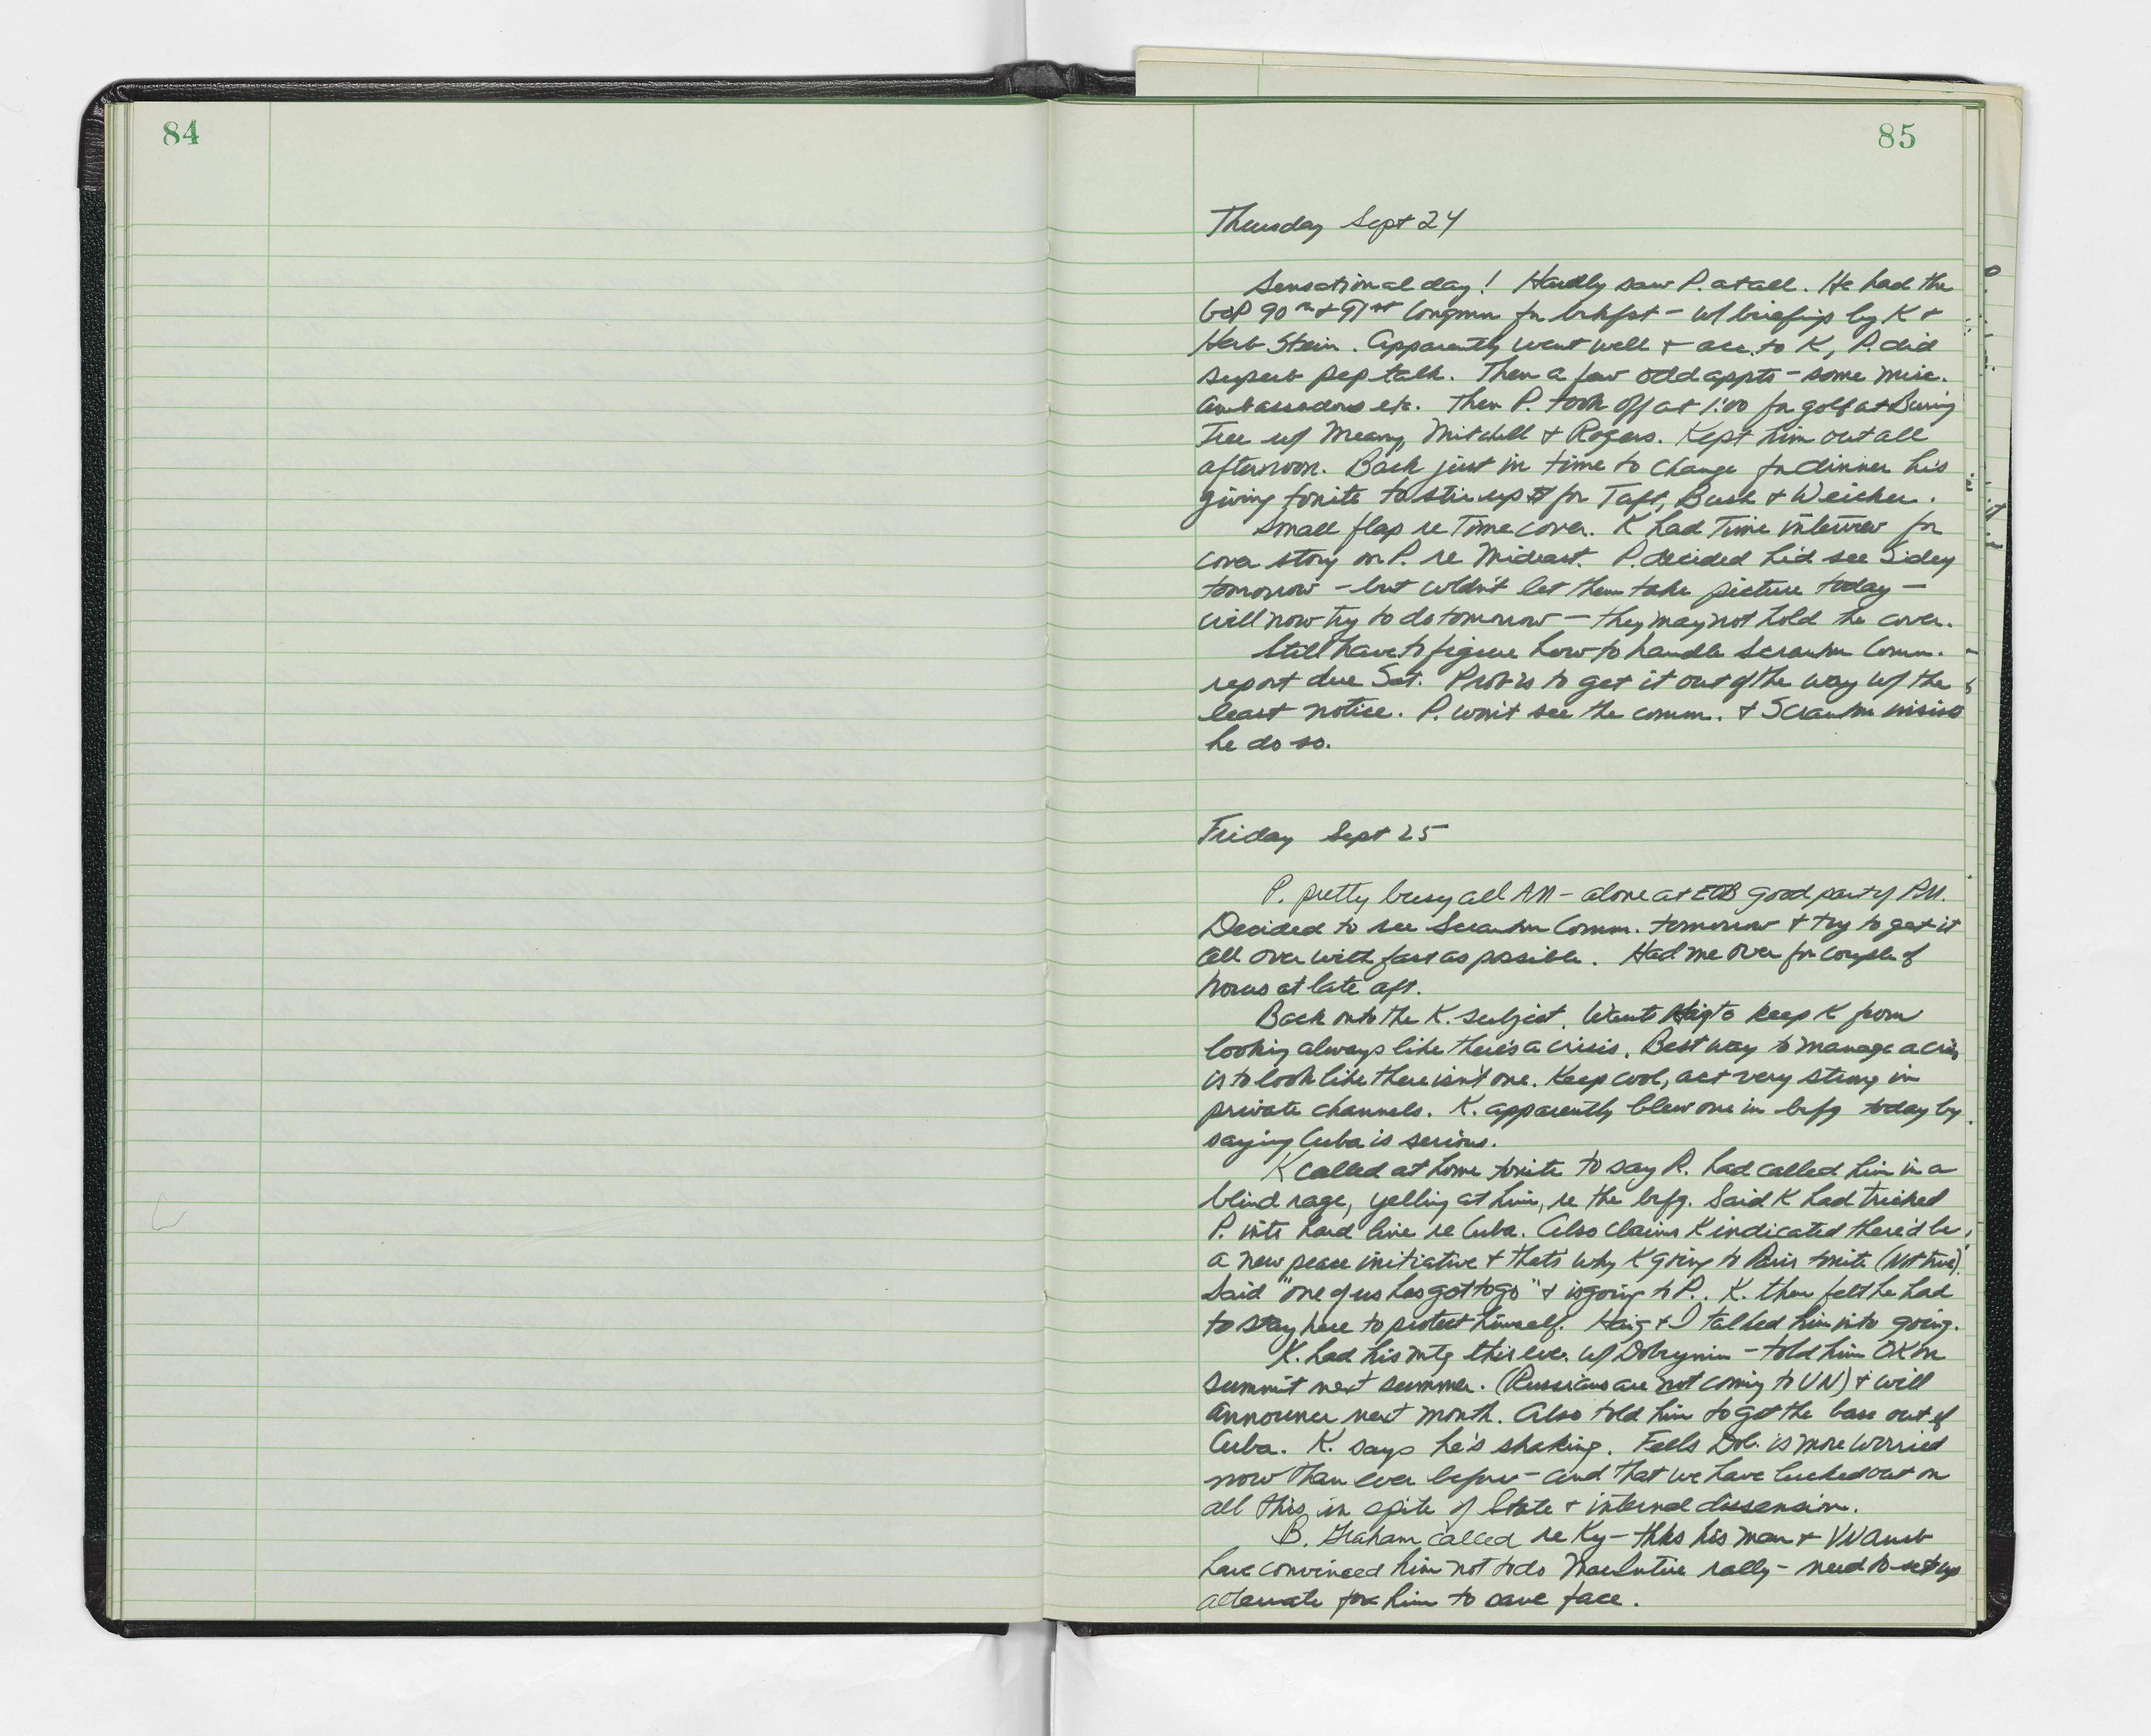 84
85
Thursday Sept 24
Sensational day! Hardly saw P. at all. He had the
GOP 90th & 91st Congmn for brkfst - w/ briefings by K &
Herb Stein. Apparently went well & acc. to K, P. did
superb pep talk. Then a few odd appts - some misc.
ambassadors etc. Then P. took off at 1:00 for golf at Burning
Tree w/ Meany, Mitchell & Rogers. Kept him out all
afternoon. Back just in time to change for dinner he's
giving tonite to stir up $ for Taft, Bush & Weicker.
Small flap re Time cover. K had Time interview for
cover story on P. re Mideast. P. decided he'd see Sidey
tomorrow - but wldn't let them take picture today -
will now try to do tomorrow - they may not hold the cover.
Still have to figure how to handle Scranton Comm.
report due Sat. Prob is to get it out of the way w/ the
least notice. P. won't see the comm. & Scranton insists
he do so.
Friday Sept 25
P. pretty busy all AM - alone at EOB good part of PM.
Decided to see Scranton Comm. tomorrow & try to get it
all over with fast as possible. Had me over for couple of
hours at late aft.
Back onto the K. subject. Wants Haig to keep K from
looking always like there's a crisis. Best way to manage a crisis
is to look like there isn't one. Keep cool, act very strong in
private channels. K. apparently blew one in brfg today by
saying Cuba is serious.
K called at home tonite to say R. had called him in a
blind rage, yelling at him, re the brfg. Said K had tricked
P. into hard line re Cuba. Also claims K indicated there'd be
a new peace initiative & that's why K going to Paris tonite (Not true).
Said "one of us has got to go" & is going to P. K. then felt he had
to stay here to protect himself. Haig & I talked him into going.
K. had his mtg this eve. w/ Dobrynin - told him OK on
summit next summer. (Russians are not coming to UN) & will
announce next month. Also told him to get the base out of
Cuba. K. says he's shaking. Feels Dob. is more worried
now than ever before - and that we have lucked out on
all this in spite of State & internal dissension.
B. Graham called re Ky - thks his man & VN Amb
have convinced him not to do MacIntire rally - need to set up
alternate for him to save face.